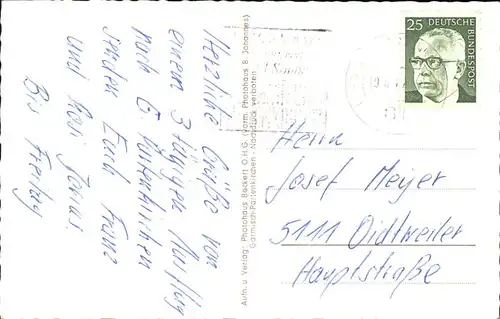 Herzliche Grüße von
einem 3 tägigen Ausflug
nach G. Partenkirchen
senden Euch Franz
und Rosi
Bis Freitag
Aufn. u. Verlag: Photohaus Beckert O.H.G. (vorm. Photohaus B. Johannes)
Garmisch-Partenkirchen - Nachdruck verboten
25 DEUTSCHE
BUNDESPOST
Herrn
Josef Meyer
5111 Oidtweiler
Hauptstraße